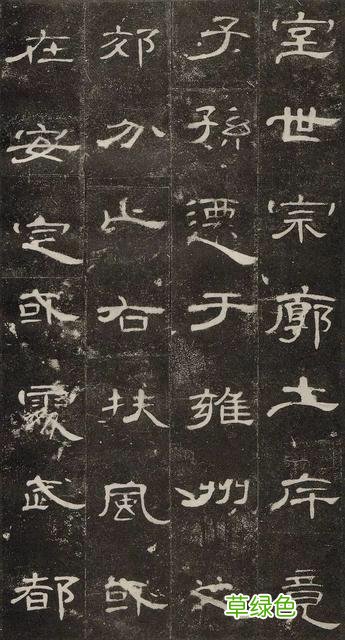 室世宗廓土斥竟
子孫遷于雍州之
郊分止右扶風或
在安定或處武都
草绿色